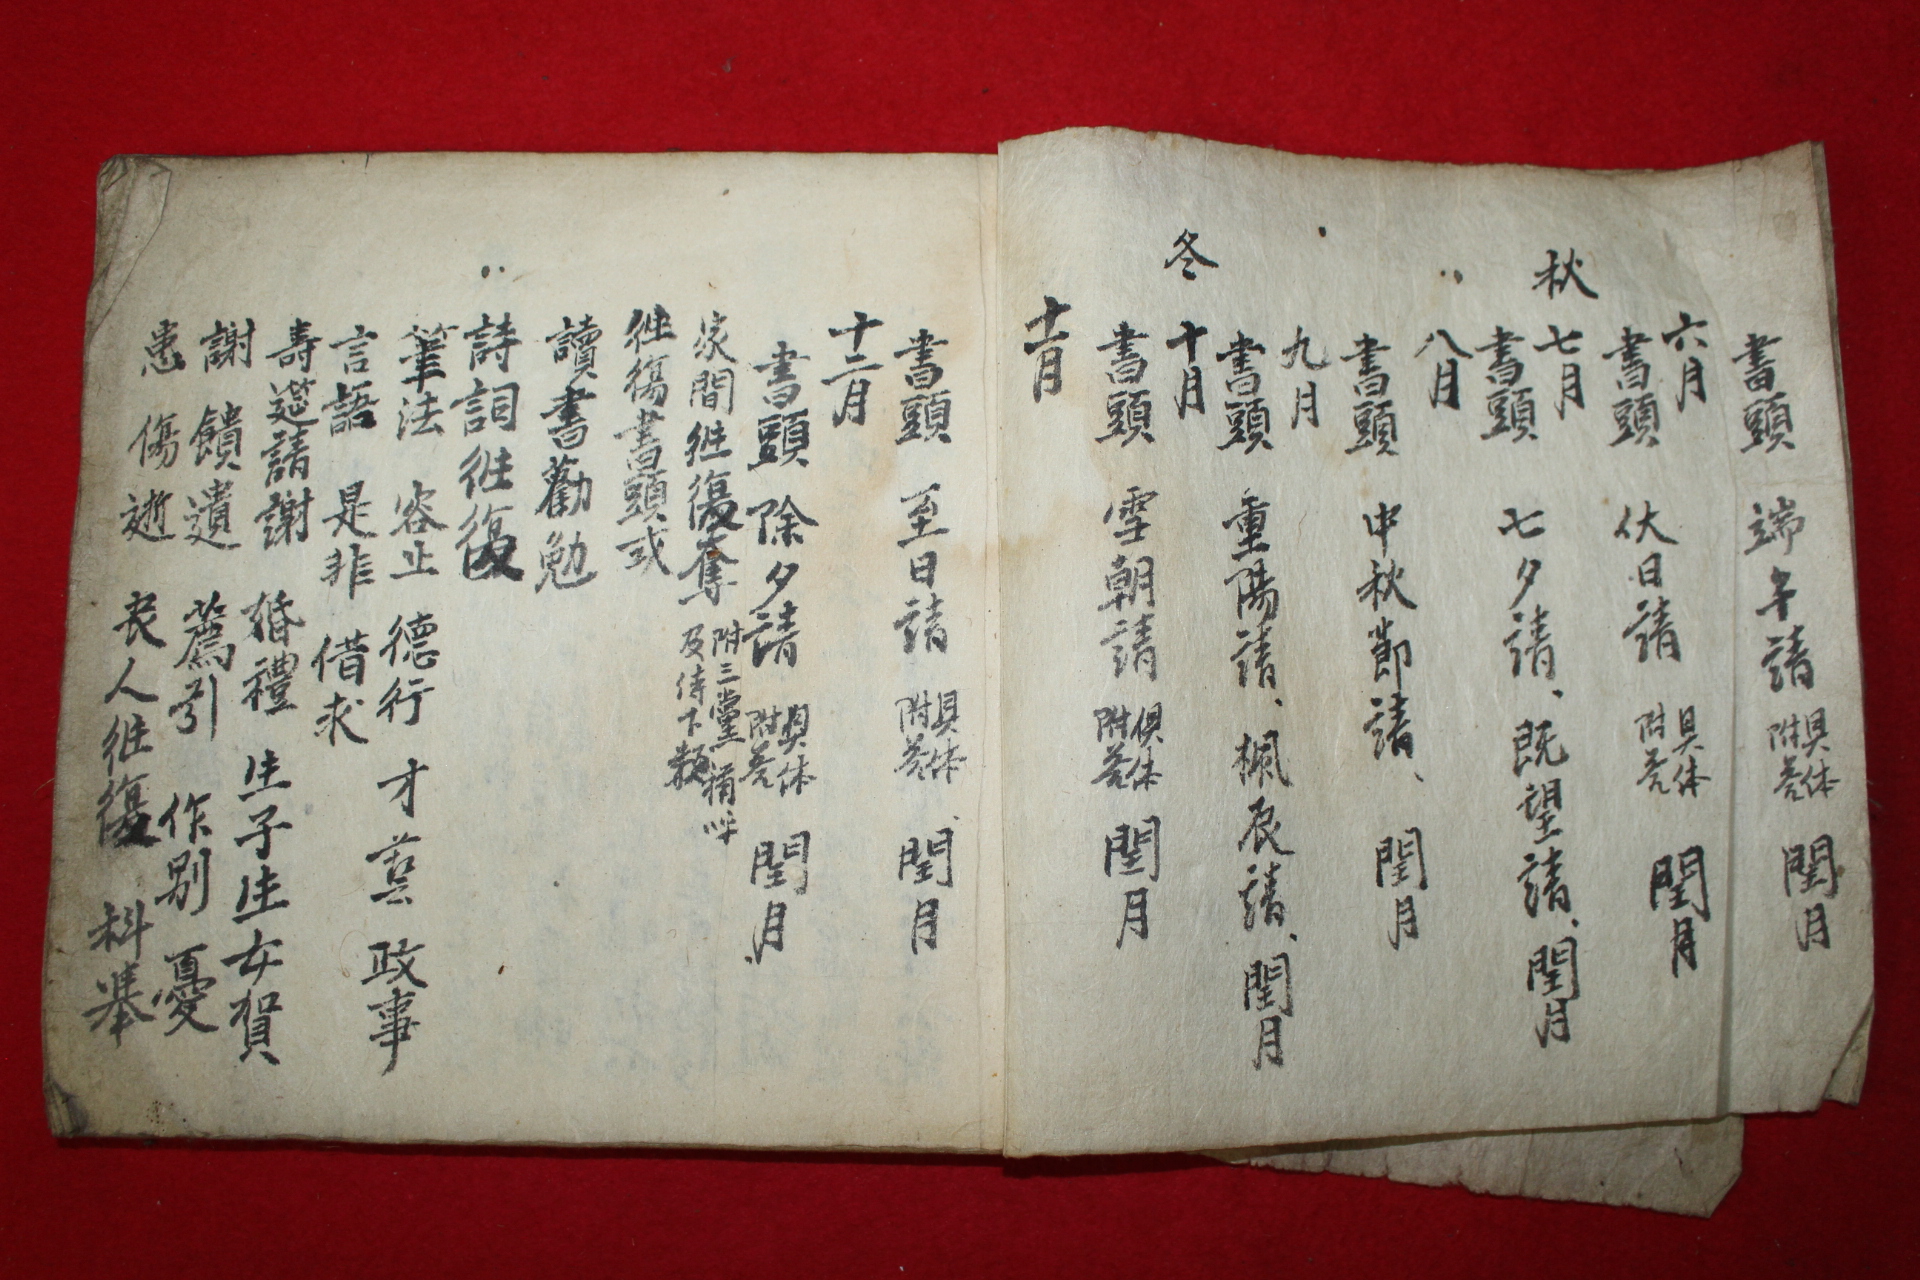 書頭 端午請 具体附答 閏月
六月
書頭 伏日請 具体附答 閏月
秋
七月
書頭 七夕請、既望請、閏月
八月
書頭 中秋節請、 閏月
九月
書頭 重陽請、楓辰請、閏月
冬
十月
書頭 雪朝請 俱体附答 閏月
十一月
書頭 至日請 具体附答 閏月
十二月
書頭 除夕請 具体附答 閏月
家間徃復 附三黨稱呼及侍下類
徃復書頭式
讀書勸勉
詩詞徃復
筆法 容止 德行 才藝 政事
言語 是非 借求
壽筵請謝 婚禮 生子生女賀
謝 饋遺 薦引 作別 憂
患 傷逝 喪人徃復 科擧